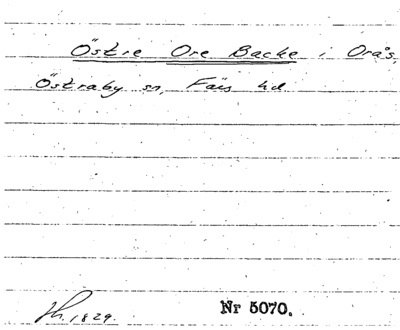 Östre Ore Backe i Orås,
Östraby sn, Färs hd
1829.
Nr 5070.